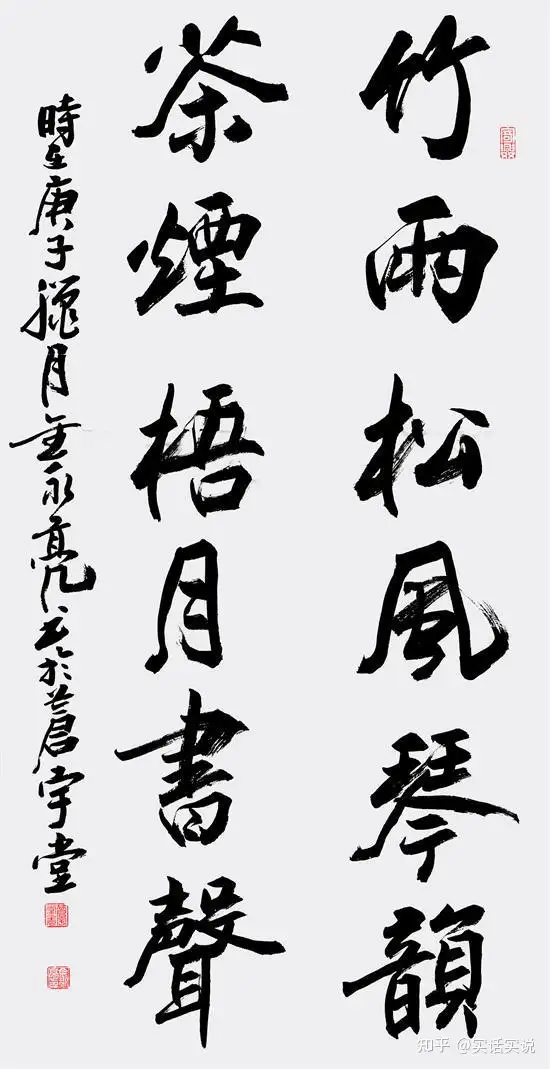 竹雨松風琴韻
茶煙梧月書聲
時在庚子臘月金永亮书於蒼宇堂
知乎 @实话实说